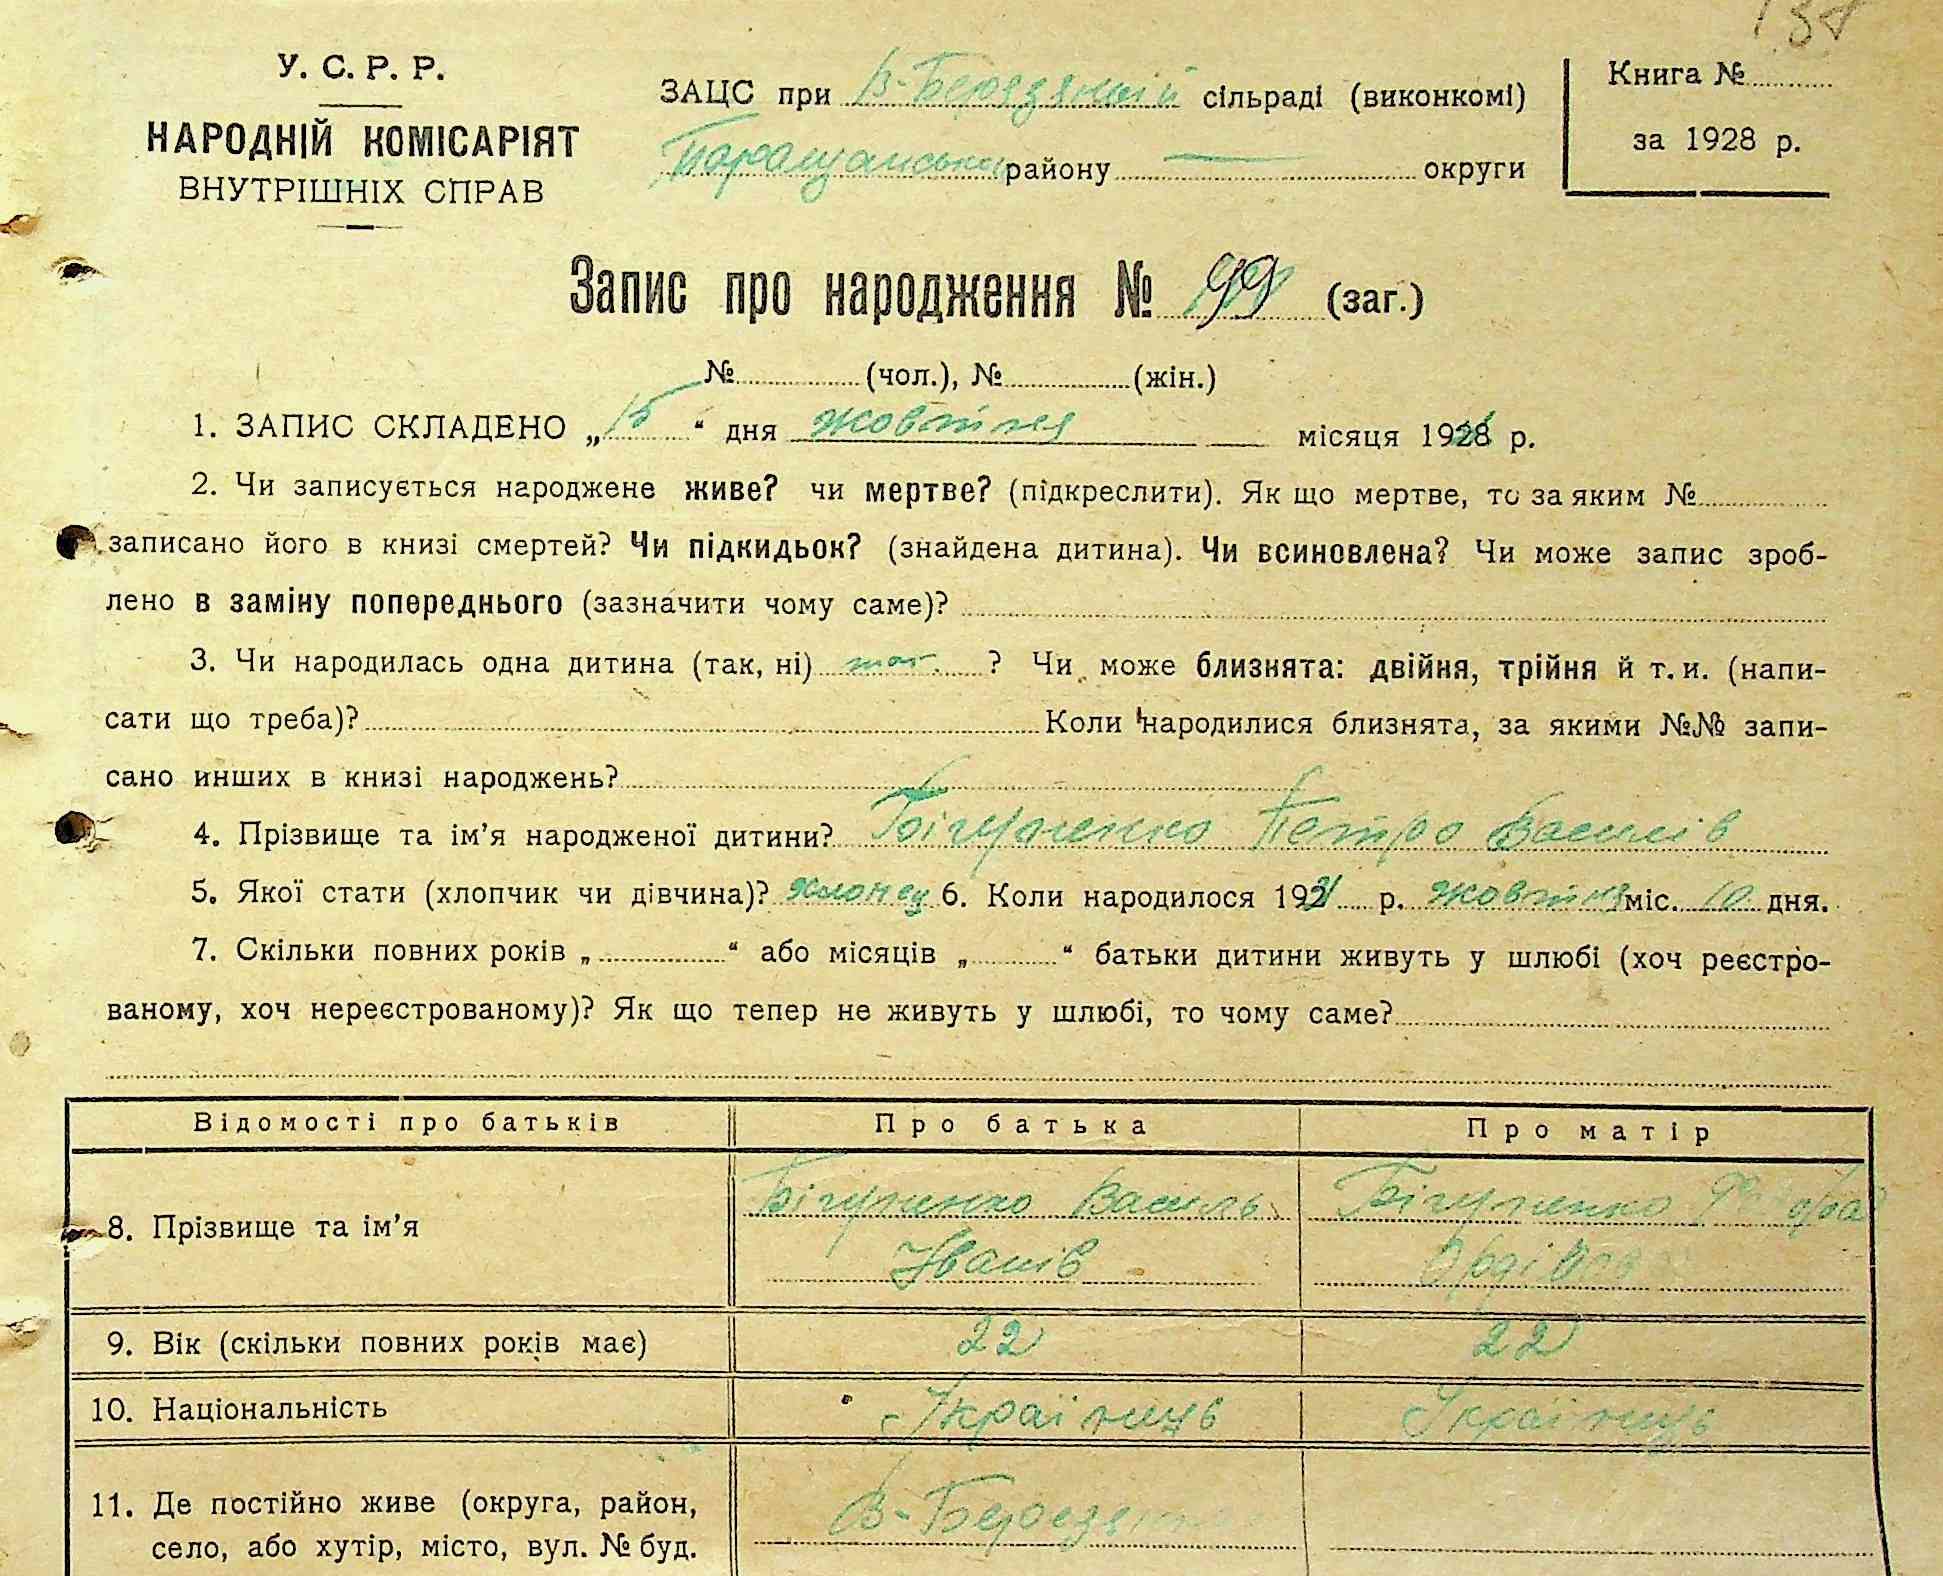 138
У. С. Р. Р.
НАРОДНІЙ КОМІСАРІЯТ
ВНУТРІШНІХ СПРАВ
ЗАЦС при В-Березянській сільраді (виконкомі)
району округи
Книга №
за 1928 р.
Запис про народження № 99 (заг.)
№ (чол.), № (жін.)
1. ЗАПИС СКЛАДЕНО „15“ дня жовтня місяця 1928 р.
2. Чи записується народжене живе? чи мертве? (підкреслити). Як що мертве, то за яким №
записано його в книзі смертей? Чи підкидьок? (знайдена дитина). Чи всиновлена? Чи може запис зроб-
лено в заміну попереднього (зазначити чому саме)?
3. Чи народилась одна дитина (так, ні) так ? Чи може близнята: двійня, трійня й т. и. (напи-
сати що треба)? Коли народилися близнята, за якими №№ запи-
сано инших в книзі народжень?
4. Прізвище та ім’я народженої дитини? Бігуненко Петро Василів
5. Якої стати (хлопчик чи дівчина)? хлопец 6. Коли народилося 192 р. жовтня міс. 10 дня.
7. Скільки повних років „ “ або місяців „ “ батьки дитини живуть у шлюбі (хоч реєстро-
ваному, хоч нереєстрованому)? Як що тепер не живуть у шлюбі, то чому саме?
Відомості про батьків Про батька Про матір
8. Прізвище та ім’я Бігуненко Василь Бігуненко
Иванів
9. Вік (скільки повних років має) 22 22
10. Національність Українець Українець
11. Де постійно живе (округа, район,
село, або хутір, місто, вул. № буд.